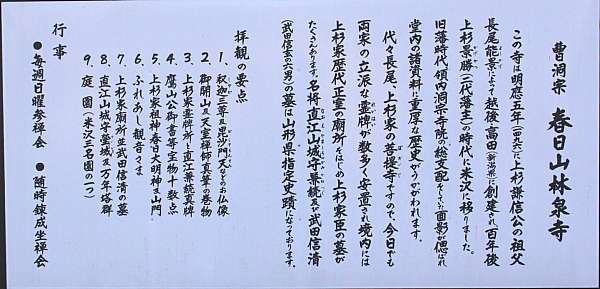 曹洞宗 春日山林泉寺
この寺は明應五年(一四九六)に上杉謙信公の祖父
長尾能景によって越後高田(新潟県)に創建され百年後
上杉景勝(二代藩主)の時代に米沢に移りました。
旧藩時代領内洞宗寺院の総支配をしていた面影が偲ばれ
堂内の諸資料に重厚な歴史がうかがわれます。
代々長尾、上杉家の菩提寺ですので、今日でも
両家の立派な霊牌が数多く安置され境内には
上杉家歴代正室の廟所をはじめ上杉家臣の墓が
たくさんあります。名将直江山城守兼続及び武田信清
(武田信玄の六男)の墓は山形県指定史蹟になっております。
拝観の要点
1、釈迦三尊及毘沙門天などの仏像
2、御開山及天室禅師真筆の巻物
3、上杉家霊牌所と直江兼続真牌
4、鷹山公御書等宝物十数点
5、上杉家祖神春日大明神と山門
6、ふれあし観音さま
7、上杉家廟所並武田信清の墓
8、直江山城守霊域及万年塔群
9、庭園(米沢三名園の一つ)
行事
●毎週日曜参禅会 ●随時錬成坐禅会